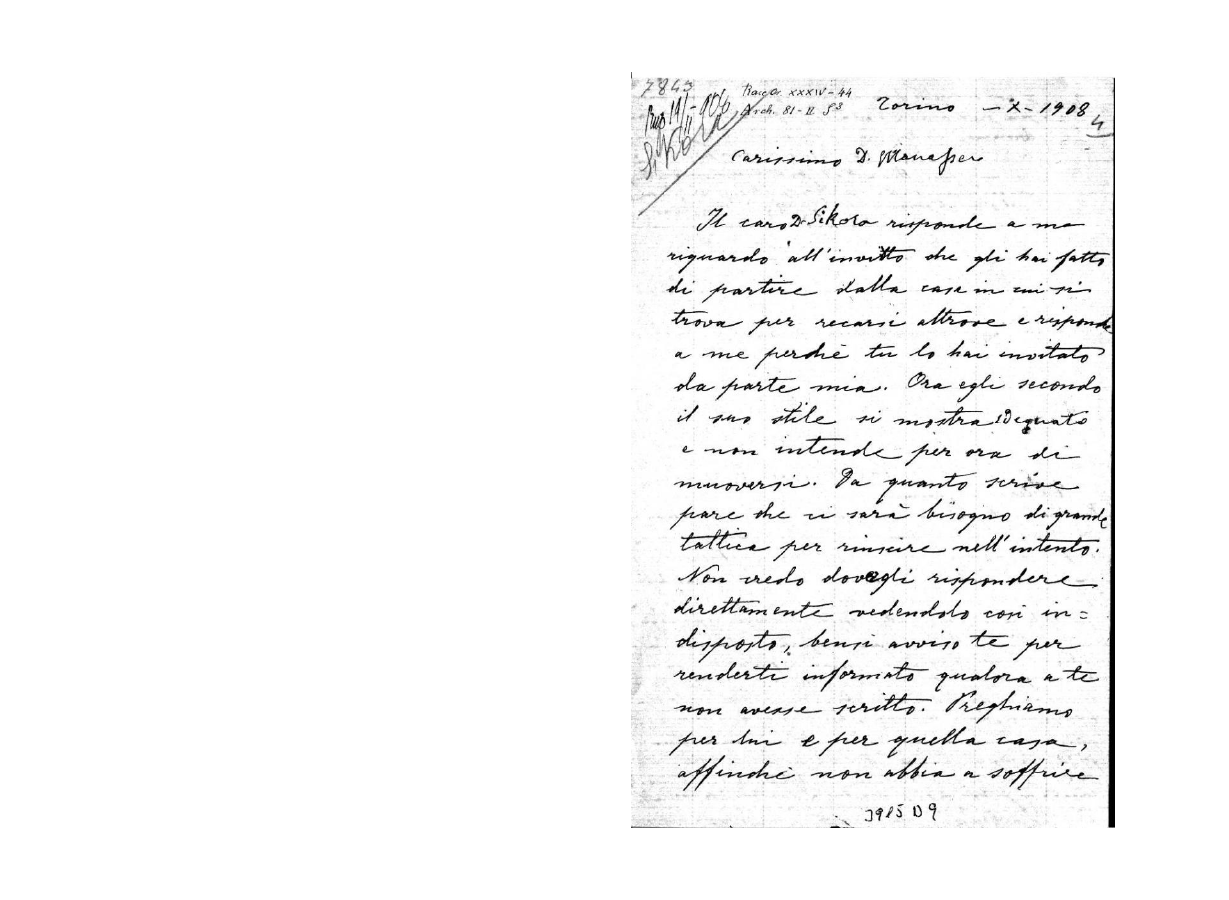 7843
Racc. XXXIV-44
Arch. 81-II S3
Torino -X-1908
4
Sikora
Carissimo D. Manassero
Il caro D. Sikora risponde a me
riguardo all'invitto che gli hai fatto
di partire dalla casa in cui si
trova per recarsi altrove e risponde
a me perchè tu lo hai invitato
da parte mia. Ora egli secondo
il suo stile si mostra
e non intende per ora di
muoversi. Da quanto scrive
pare che ci sarà bisogno di grande
tattica per riuscire nell'intento.
Non credo dovergli rispondere
direttamente vedendolo così in=
disposto, bensì avviso te per
renderti informato qualora a te
non avesse scritto. Preghiamo
per lui e per quella casa,
affinchè non abbia a soffrire
3985 D9